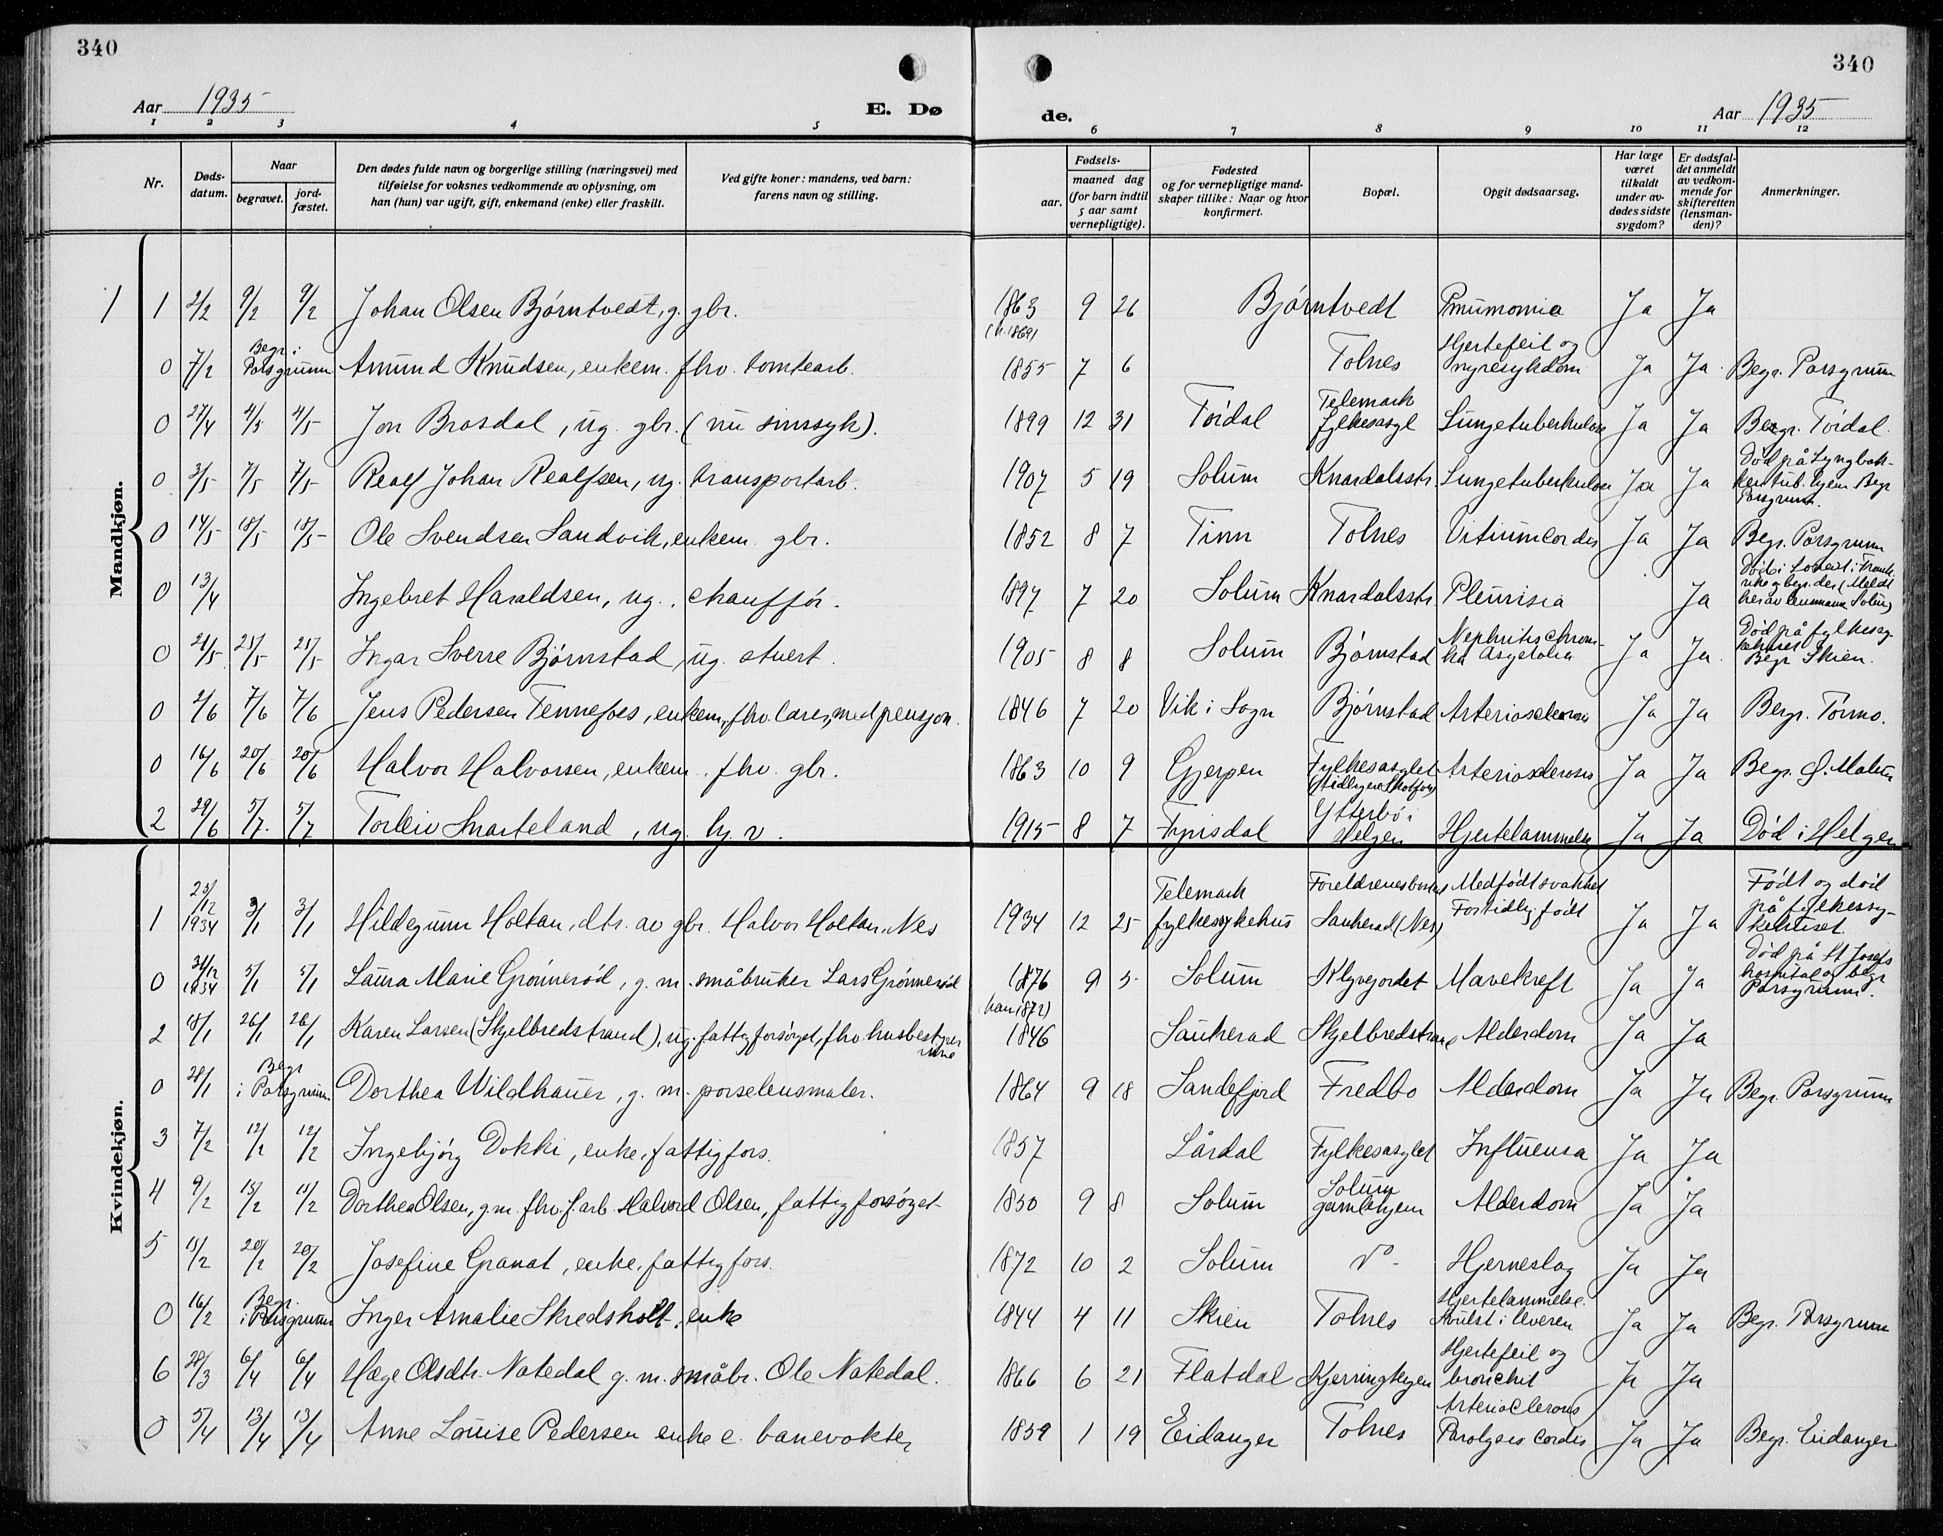 340
340
Aar 1935
E. Dø
de.
Aar 1935
1 2 3 4 5 6 7 8 9 10 11 12
Nr.
Døds-
datum.
Naar
begravet.
jord-
fæstet.
Den dødes fulde navn og borgerlige stilling (næringsvei) med
tilføielse for voksnes vedkommende av oplysning, om
han (hun) var ugift, gift, enkemand (enke) eller fraskilt.
Ved gifte koner: mandens, ved barn:
farens navn og stilling.
Fødsels-
aar.
maaned dag
(for barn indtil
5 aar samt
vernepligtige).
Fødested
og for vernepligtige mand-
skaper tillike: Naar og hvor
konfirmert.
Bopæl.
Opgit dødsaarsag.
Har læge
været
tilkaldt
under av-
dødes sidste
sygdom?
Er dødsfal-
det anmeldt
av vedkom-
mende for
skifteretten
(lensman-
den)?
Anmerkninger.
Mandkjøn.
1 1 2/2 9/2 9/2 Johan Olsen Bjørntvedt, g. gbr. 1863 9 26 Bjørntvedt Pneumonia Ja Ja
0 7/2 Begr. i Porsgrunn Amund Knudsen, enkem. fhv. tomtearb. 1855 7 6 Tolnes Hjertefeil og nyresykdom Ja Ja Begr. Porsgrunn
0 27/4 4/5 4/5 Jon Brosdal, ug. gbr. (nu sinssyk). 1899 12 31 Tørdal Telemark fylkesasyl Lungetuberkulose Ja Ja Begr. Tørdal
0 3/5 7/5 7/5 Realf Johan Realfsen, ug. transportarb. 1907 5 19 Solum Knardalsstr Lungetuberkulose Ja Ja Død på Lyngbak-
ken tub. hjem Begr
Porsgrunn.
0 14/5 18/5 18/5 Ole Svendsen Sandvik, enkem. gbr. 1852 8 7 Tinn Tolnes Vitium cordis Ja Ja Begr. Porsgrunn
0 13/4 Ingebret Haraldsen, ug., chauffør. 1897 7 20 Solum Knardalsstr Pleurisia Ja
0 21/5 25/5 25/5 Ingar Sverre Bjørnstad, ug. stuert. 1905 8 8 Solum Bjørnstad Nephritis chroni-
ka Asystolia Ja Ja Død på fylkessy-
kehuset
Begr Skien.
0 2/6 7/6 7/6 Jens Pedersen Tennefoss, enkem, fhv. lærer, med pensjon. 1846 7 20 Vik i Sogn Bjørnstad Arteriosclerosis Ja Ja Begr. Tørmo.
0 16/6 20/6 20/6 Halvor Halvorsen, enkem. fhv. gbr. 1863 10 9 Gjerpen Fylkesasylet (tidligere Skotfoss) Arteriosclerosis Ja Ja Begr. Ø. Melum
2 29/6 5/7 5/7 Torleiv Snarteland, ug. 1915 8 7 Fyrisdal Ytterbø i Helgen Hjertelammelse Ja Ja Død i Helgen
Kvindekjøn.
1 25/12 1934 3/1 3/1 Hildegunn Holtan, dtr. av gbr. Halvor Holtan, Nes 1934 12 25 Telemark fylkessykehus Foreldrenes bosted Sauherad (Nes) Medfødt svakhet
For tidlig født Ja Ja Født og død
på fylkessy-
kehuset.
0 31/12 1934 5/1 5/1 Laura Marie Grønnerød, g. m. småbruker Lars Grønnerød 1876 9 5 Solum Klyvejordet Mavekreft Ja Ja Død på St Josefs
hospital og begr
Porsgrunn.
(han 1872)
2 18/1 26/1 26/1 Karen Larsen (Skjelbredstrand), ug. fattigforsørget, fhv. husbestyrer
inne 1846 Sauherad Skjelbredstrand Alderdom Ja Ja
0 28/1 Begr i Porsgrunn. Dorthea Wildhauer, g. m. porselensmaler. 1864 9 18 Sandefjord Fredbo Alderdom Ja Ja Begr. Porsgrunn
3 7/2 12/2 12/2 Ingebjørg Dokki, enke, fattigfors. 1857 Lårdal Fylkesasylet Influensa Ja Ja
4 9/2 15/2 15/2 Dorthea Olsen, g.m. fhv. f.arb. Halvord Olsen, fattigforsørget 1850 9 8 Solum Solum gamlehjem Alderdom Ja Ja
5 15/2 20/2 20/2 Josefine Granat, enke, fattigfors. 1872 10 2 Solum Hjerneslag Ja Ja
0 16/2 Begr. i Porsgrunn Inger Amalie Skredsholt, enke 1844 4 11 Skien Tolnes Hjertelammelse.
Svulst i leveren Ja Ja Begr. Porsgrunn
6 28/3 6/4 6/4 Hæge Olsdtr. Natedal g. m. småbr. Ole Natedal. 1866 6 21 Flatdal Kjerringteigen Hjertefeil og
bronchit Ja Ja
0 5/4 13/4 13/4 Anne Louise Pedersen enke e. banevokter 1859 1 19 Eidanger Tolnes Paralysis cordis Ja Ja Begr. Eidanger